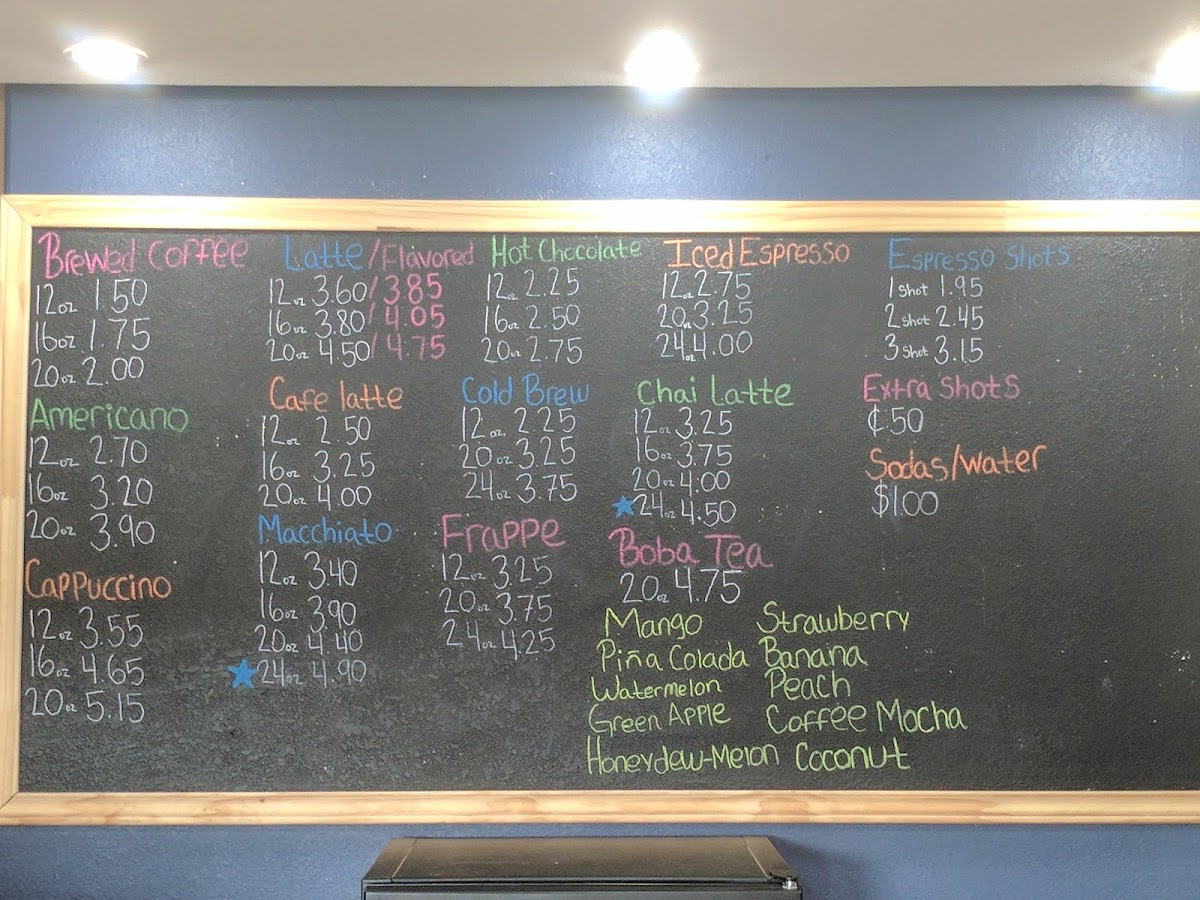 Brewed Coffee
12oz 1.50
16oz 1.75
20oz 2.00
Americano
12oz 2.70
16oz 3.20
20oz 3.90
Cappuccino
12oz 3.55
16oz 4.65
20oz 5.15
Latte/Flavored
12oz 3.60/3.85
16oz 3.80/4.05
20oz 4.50/4.75
Cafe latte
12oz 2.50
16oz 3.25
20oz 4.00
Macchiato
12oz 3.40
16oz 3.90
20oz 4.40
★24oz 4.90
Hot Chocolate
12oz 2.25
16oz 2.50
20oz 2.75
Cold Brew
12oz. 2.25
20oz 3.25
24oz 3.75
Frappe
12oz 3.25
20oz 3.75
24oz 4.25
Iced Espresso
12oz 2.75
20oz 3.25
24oz 4.00
Chai Latte
12oz 3.25
16oz 3.75
20oz 4:00
★24oz 4.50
Boba Tea
20oz 4.75
Mango Strawberry
Piña Colada Banana
Watermelon Peach
Green Apple Coffee Mocha
Honeydew-Melon Coconut
Espresso Shots
1 shot 1.95
2 shot 2.45
3 shot 3.15
Extra Shots
¢.50
Sodas/Water
$1.00